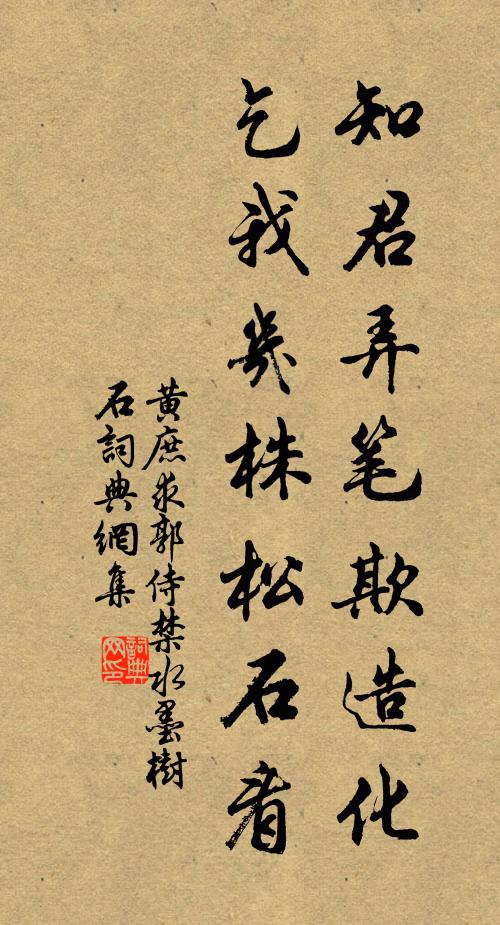 知君弄笔欺造化
乞我幾株松石看
黄庶求郭侍禁水墨樹
石詞典網集
詞典网印